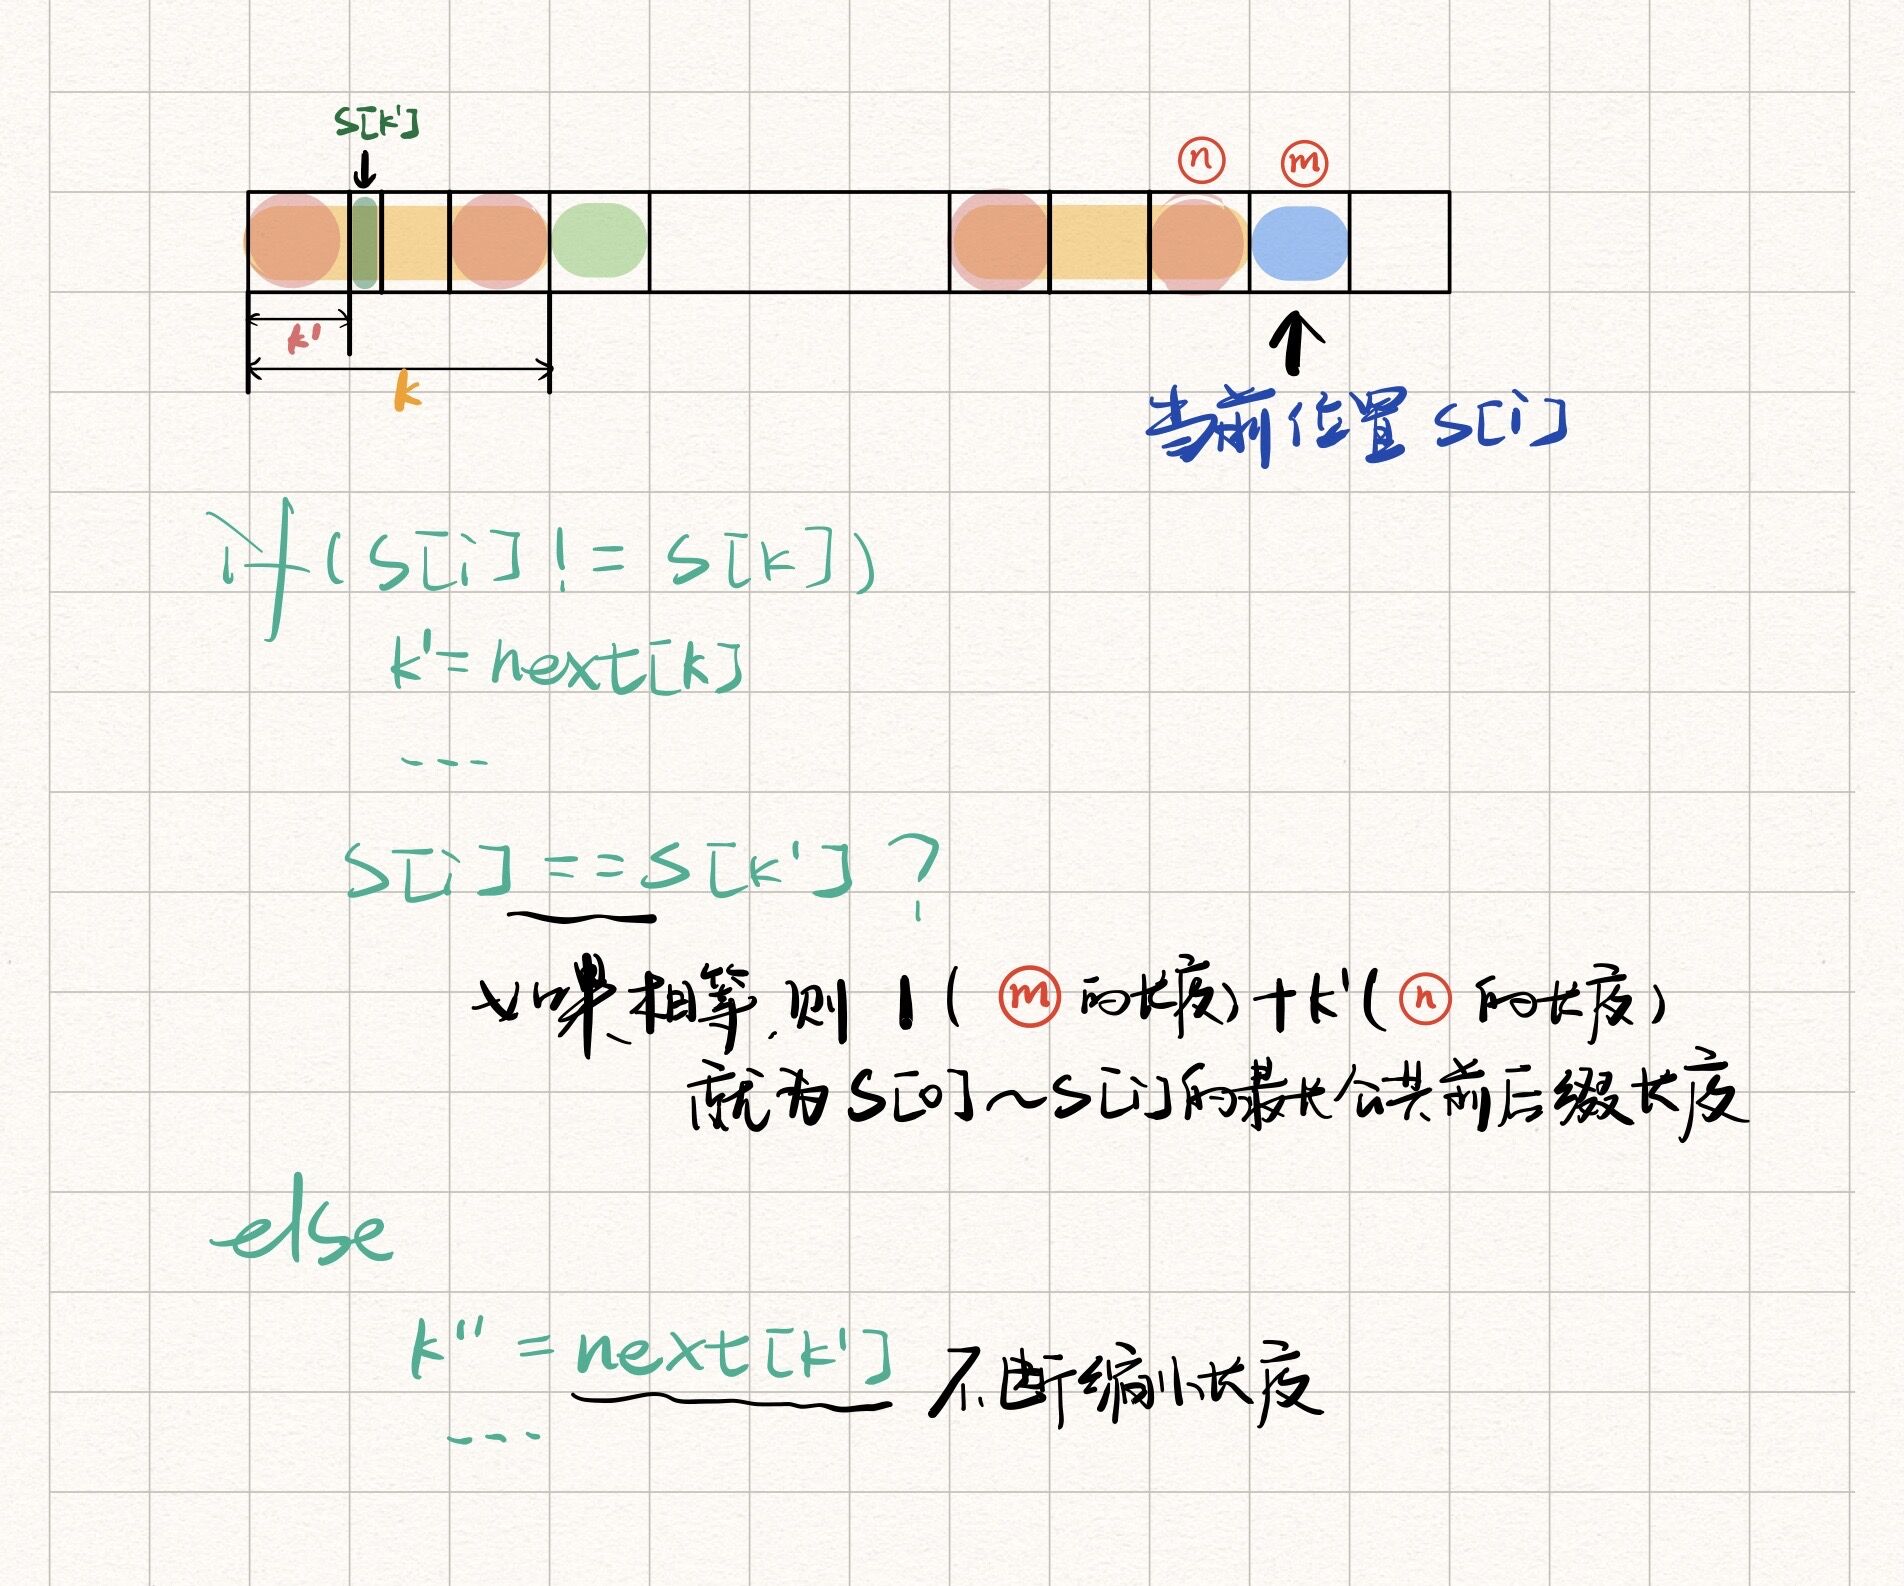 S[k']
n m
k'
k
当前位置 S[i]
if (S[i] != S[k])
k' = next[k]
---
S[i] == S[k'] ?
如果相等,则 1 ( m 的长度) + k' ( n 的长度)
就为 S[0] ~ S[i] 的最长公共前后缀长度
else
k'' = next[k'] 不断缩小长度
---